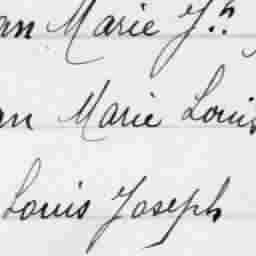 an Marie Jh.
an Marie Louis
Louis Joseph